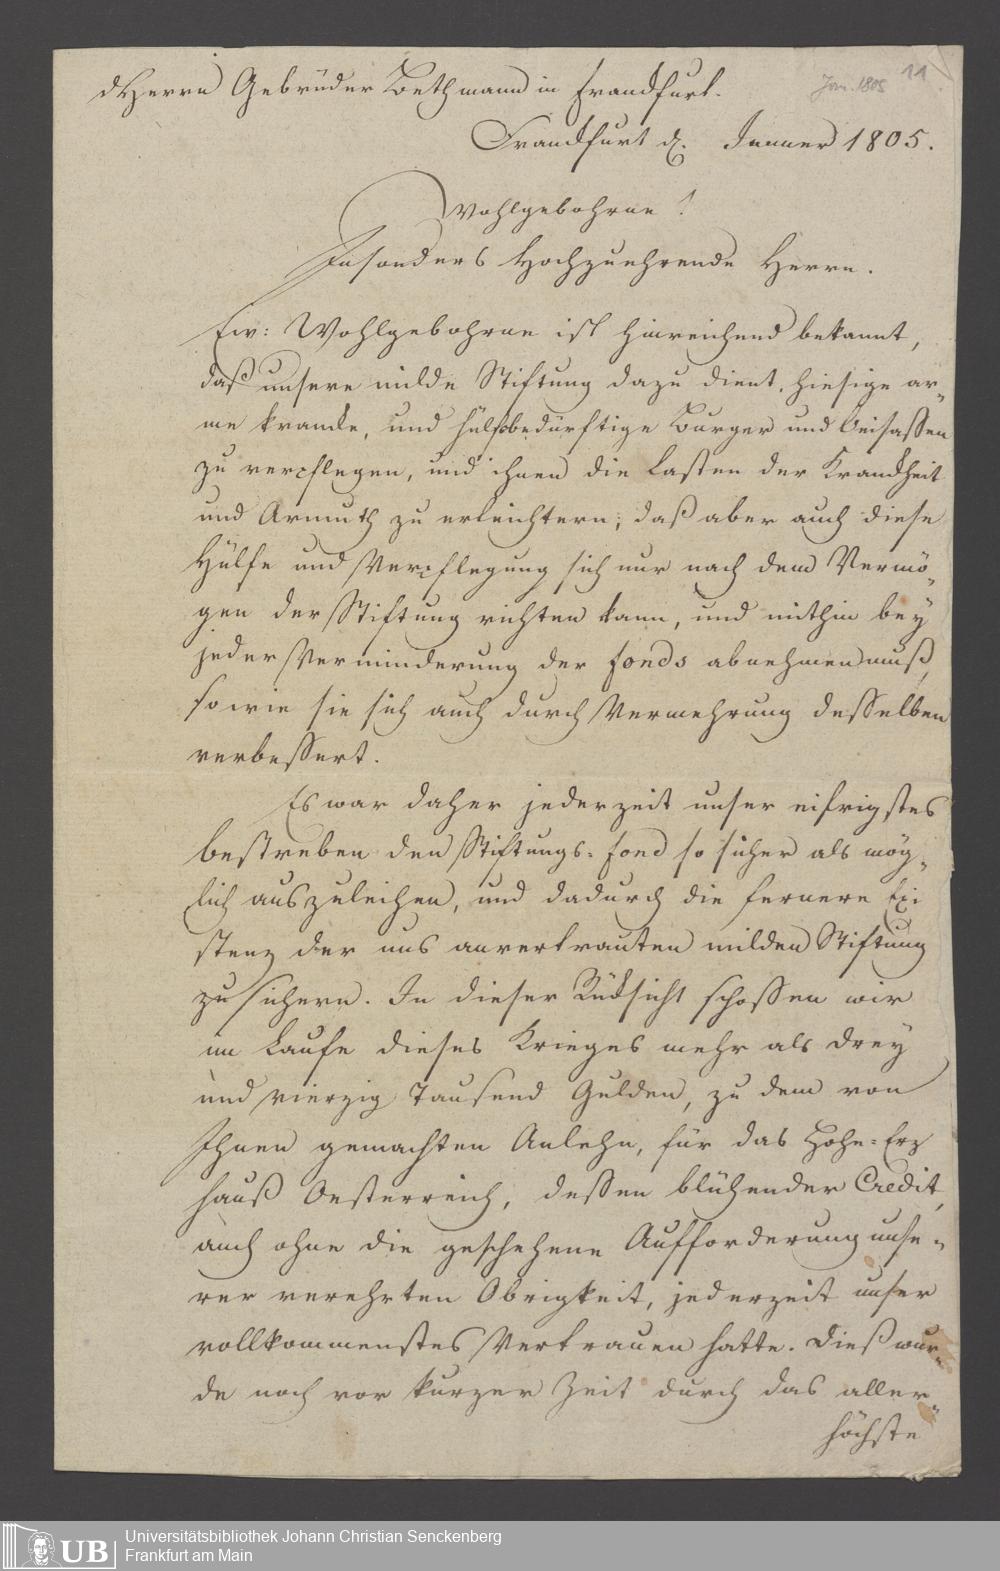 dHerrn Gebrüder Bethmann in Franckfurt.
Jan. 1805
11
Franckfurt d. Jenner 1805.
Wohlgebohrne!
Insonders Hochzuehrende Herrn.
Ew: Wohlgebohrne ist hinreichend bekannt,
daß unsere milde Stiftung dazu dient, hiesige ar-
me krancke, und hülfsbedürftige Burger und Beisassen
zu verpflegen, und ihnen die Lasten der Kranckheit
und Armuth zu erleichtern; daß aber auch diese
Hülfe und Verpflegung sich nur nach dem Vermö-
gen der Stiftung richten kann, und mithin bey
jeder Verminderung der Fonds abnehmen muß,
so wie sie sich auch durch Vermehrung desselben
verbessert.
Es war daher jederzeit unser eifrigstes
bestreben den Stiftungs-Fond so sicher als mög-
lich auszuleihen, und dadurch die fernere Exi
stenz der uns anvertrauten milden Stiftung
zu sichern. In dieser Rüksicht schossen wir
im Laufe dieses Krieges mehr als drey
und vierzig Tausend Gulden, zu dem von
Ihnen gemachten Anlehn, für das Hohe-Erz
hauß Oesterreich, dessen blühender Credit,
auch ohne die geschehene Aufforderung unse-
rer verehrten Obrigkeit, jederzeit unser
vollkommenstes Vertrauen hatte. Dieß wur-
de noch vor kurzer Zeit durch das aller-
höchste
UB
Universitätsbibliothek Johann Christian Senckenberg
Frankfurt am Main